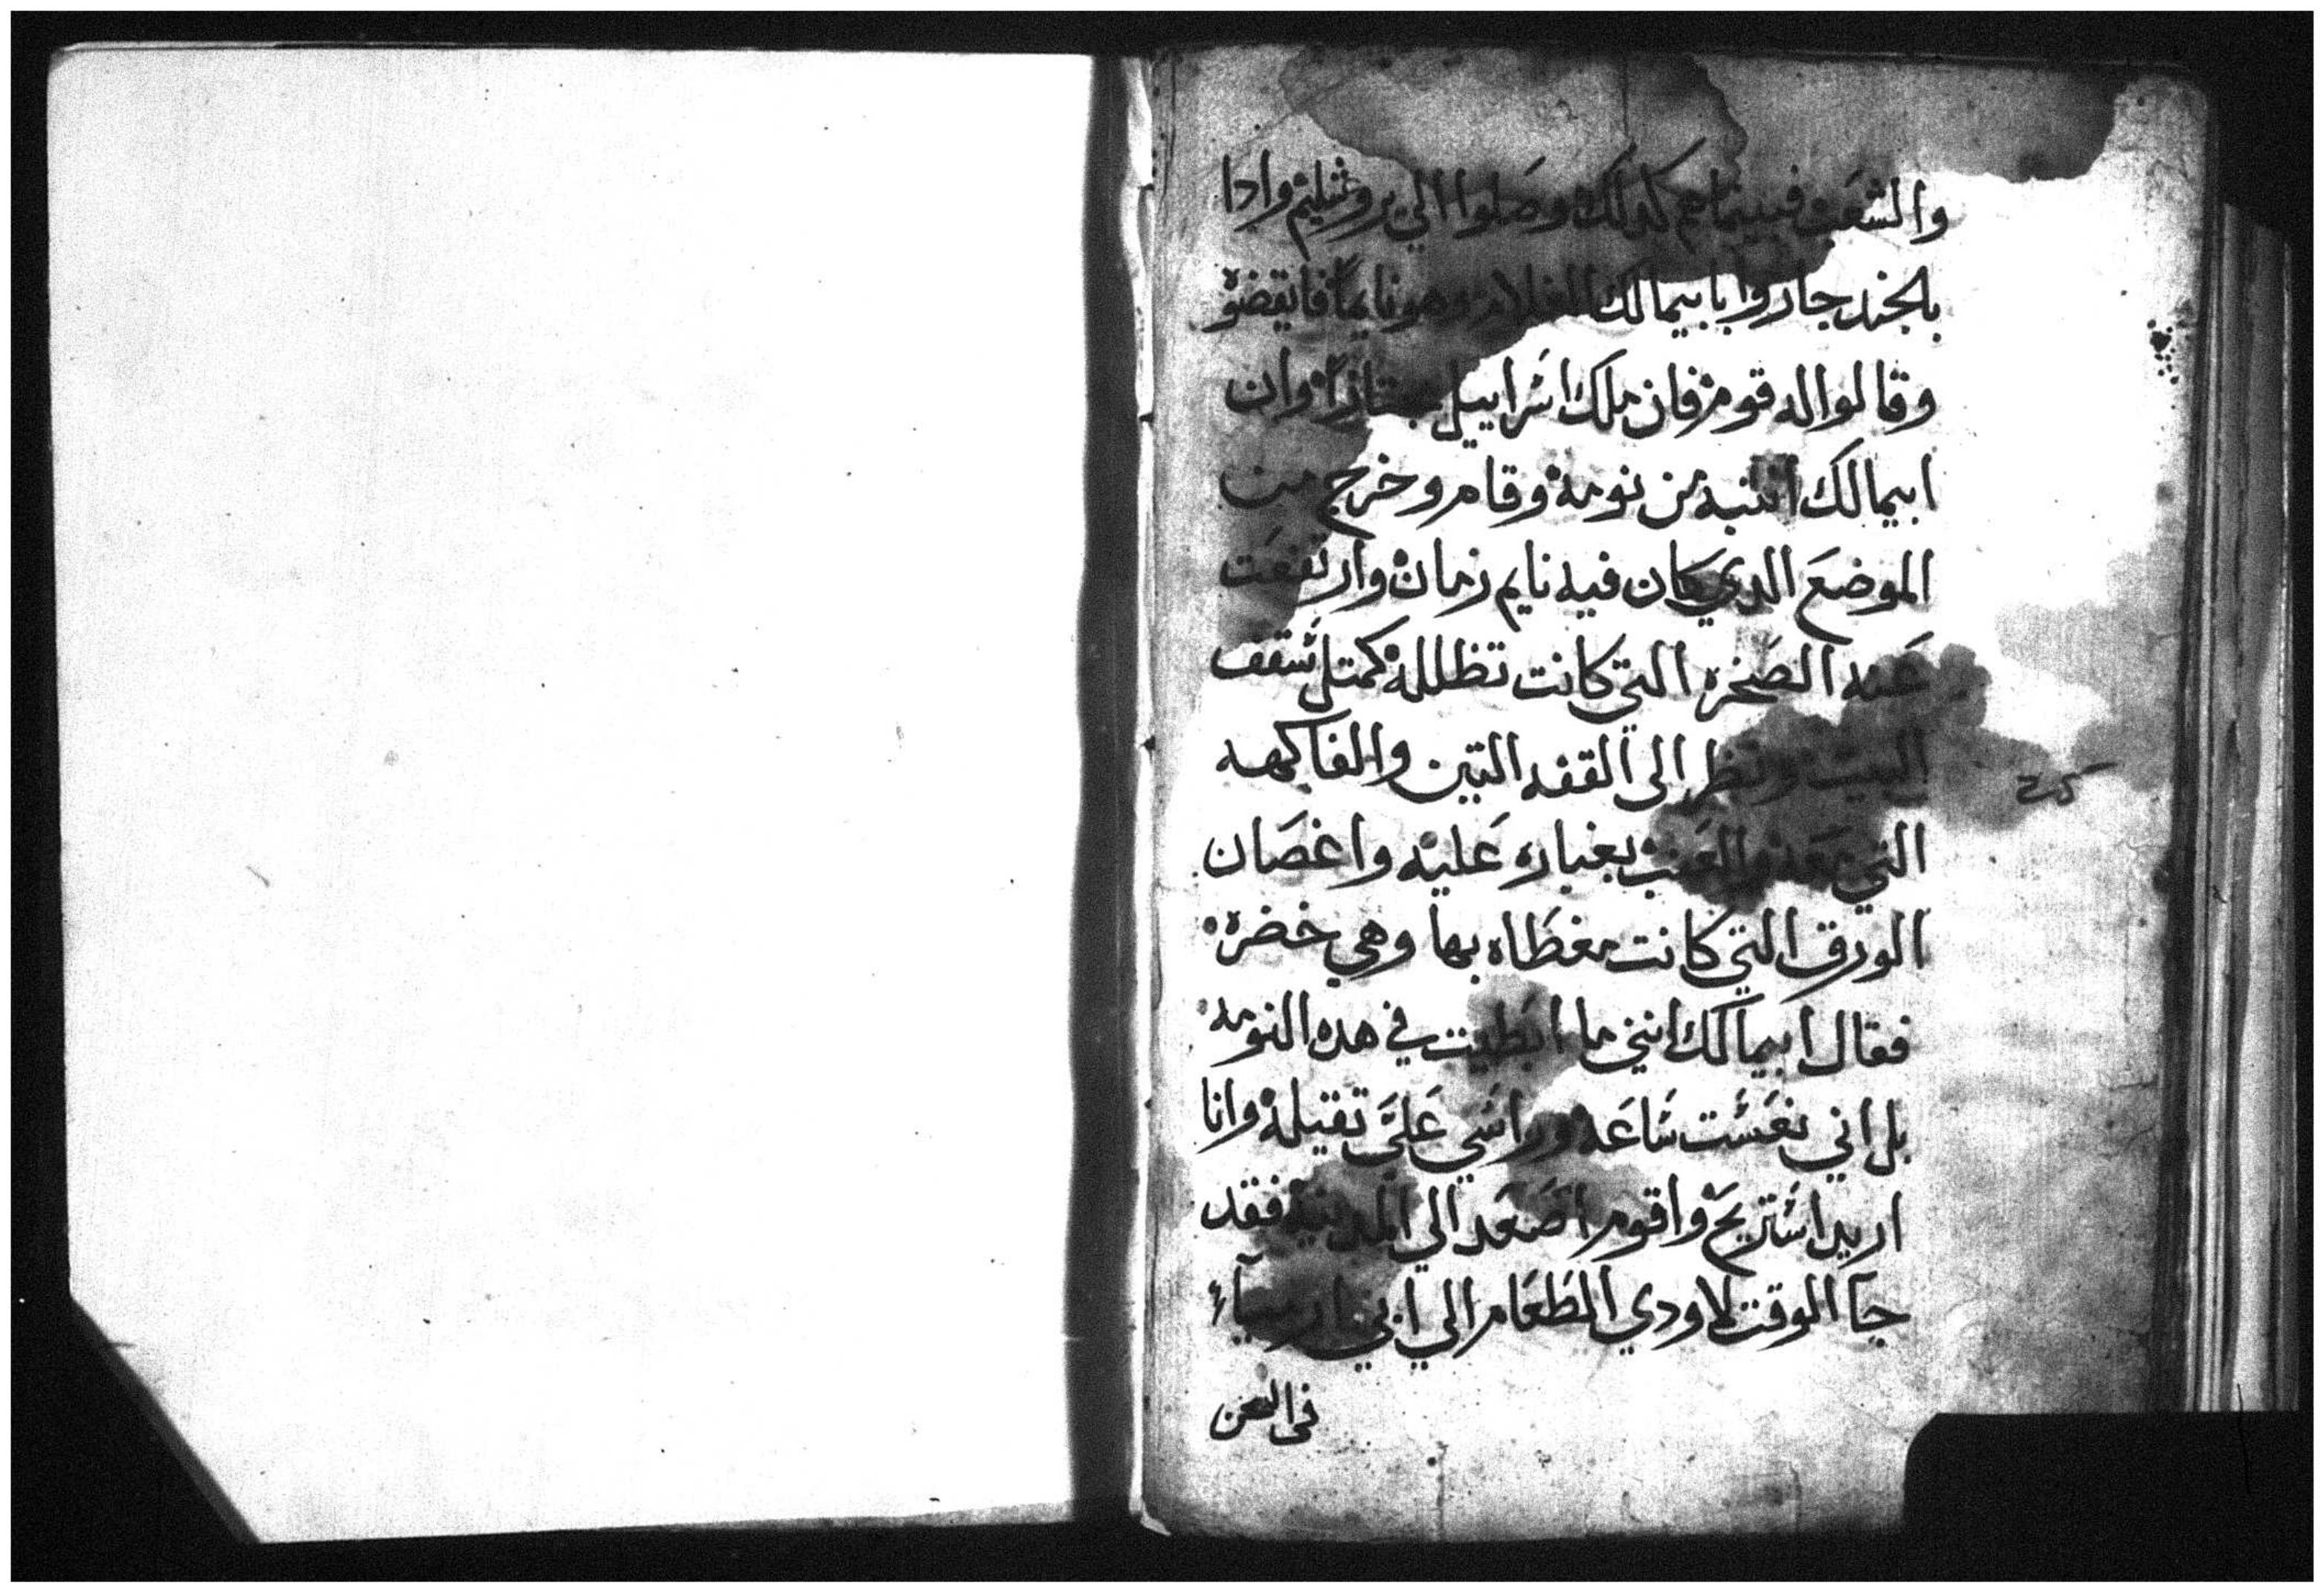 والشعب فبينما هم كدلك وصلوا الي يروشليم وادا
بالجند جازوا بابيمالك الغلام وهو نايماً فايقضوه
وقالوا له قوم فان ملك اسراييل مجتازاً وان
ابيمالك انتبه من نومه وقام وخرج من
الموضع الدي كان فيه نايم زمان وارتفعت
عنه الصخره التي كانت تظلله كمتل سقف
البيت ونظر الى القفه التين والفاكهه
التي معه والعنب بغباره عليه واغصان
الورق التي كانت مغطاه بها وهي خضره
فقال ابيمالك انني ما ابطيت في هده النومه
بل اني نعست ساعه وراسي عليَّ تقيله وانا
اريد استريح واقوم اصعد الي المدينه فقد
جآ الوقت لاودي الطعام الي ابي ارميآء
في السجن